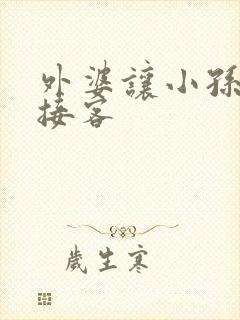 外婆讓小孫
接客
歲生寒